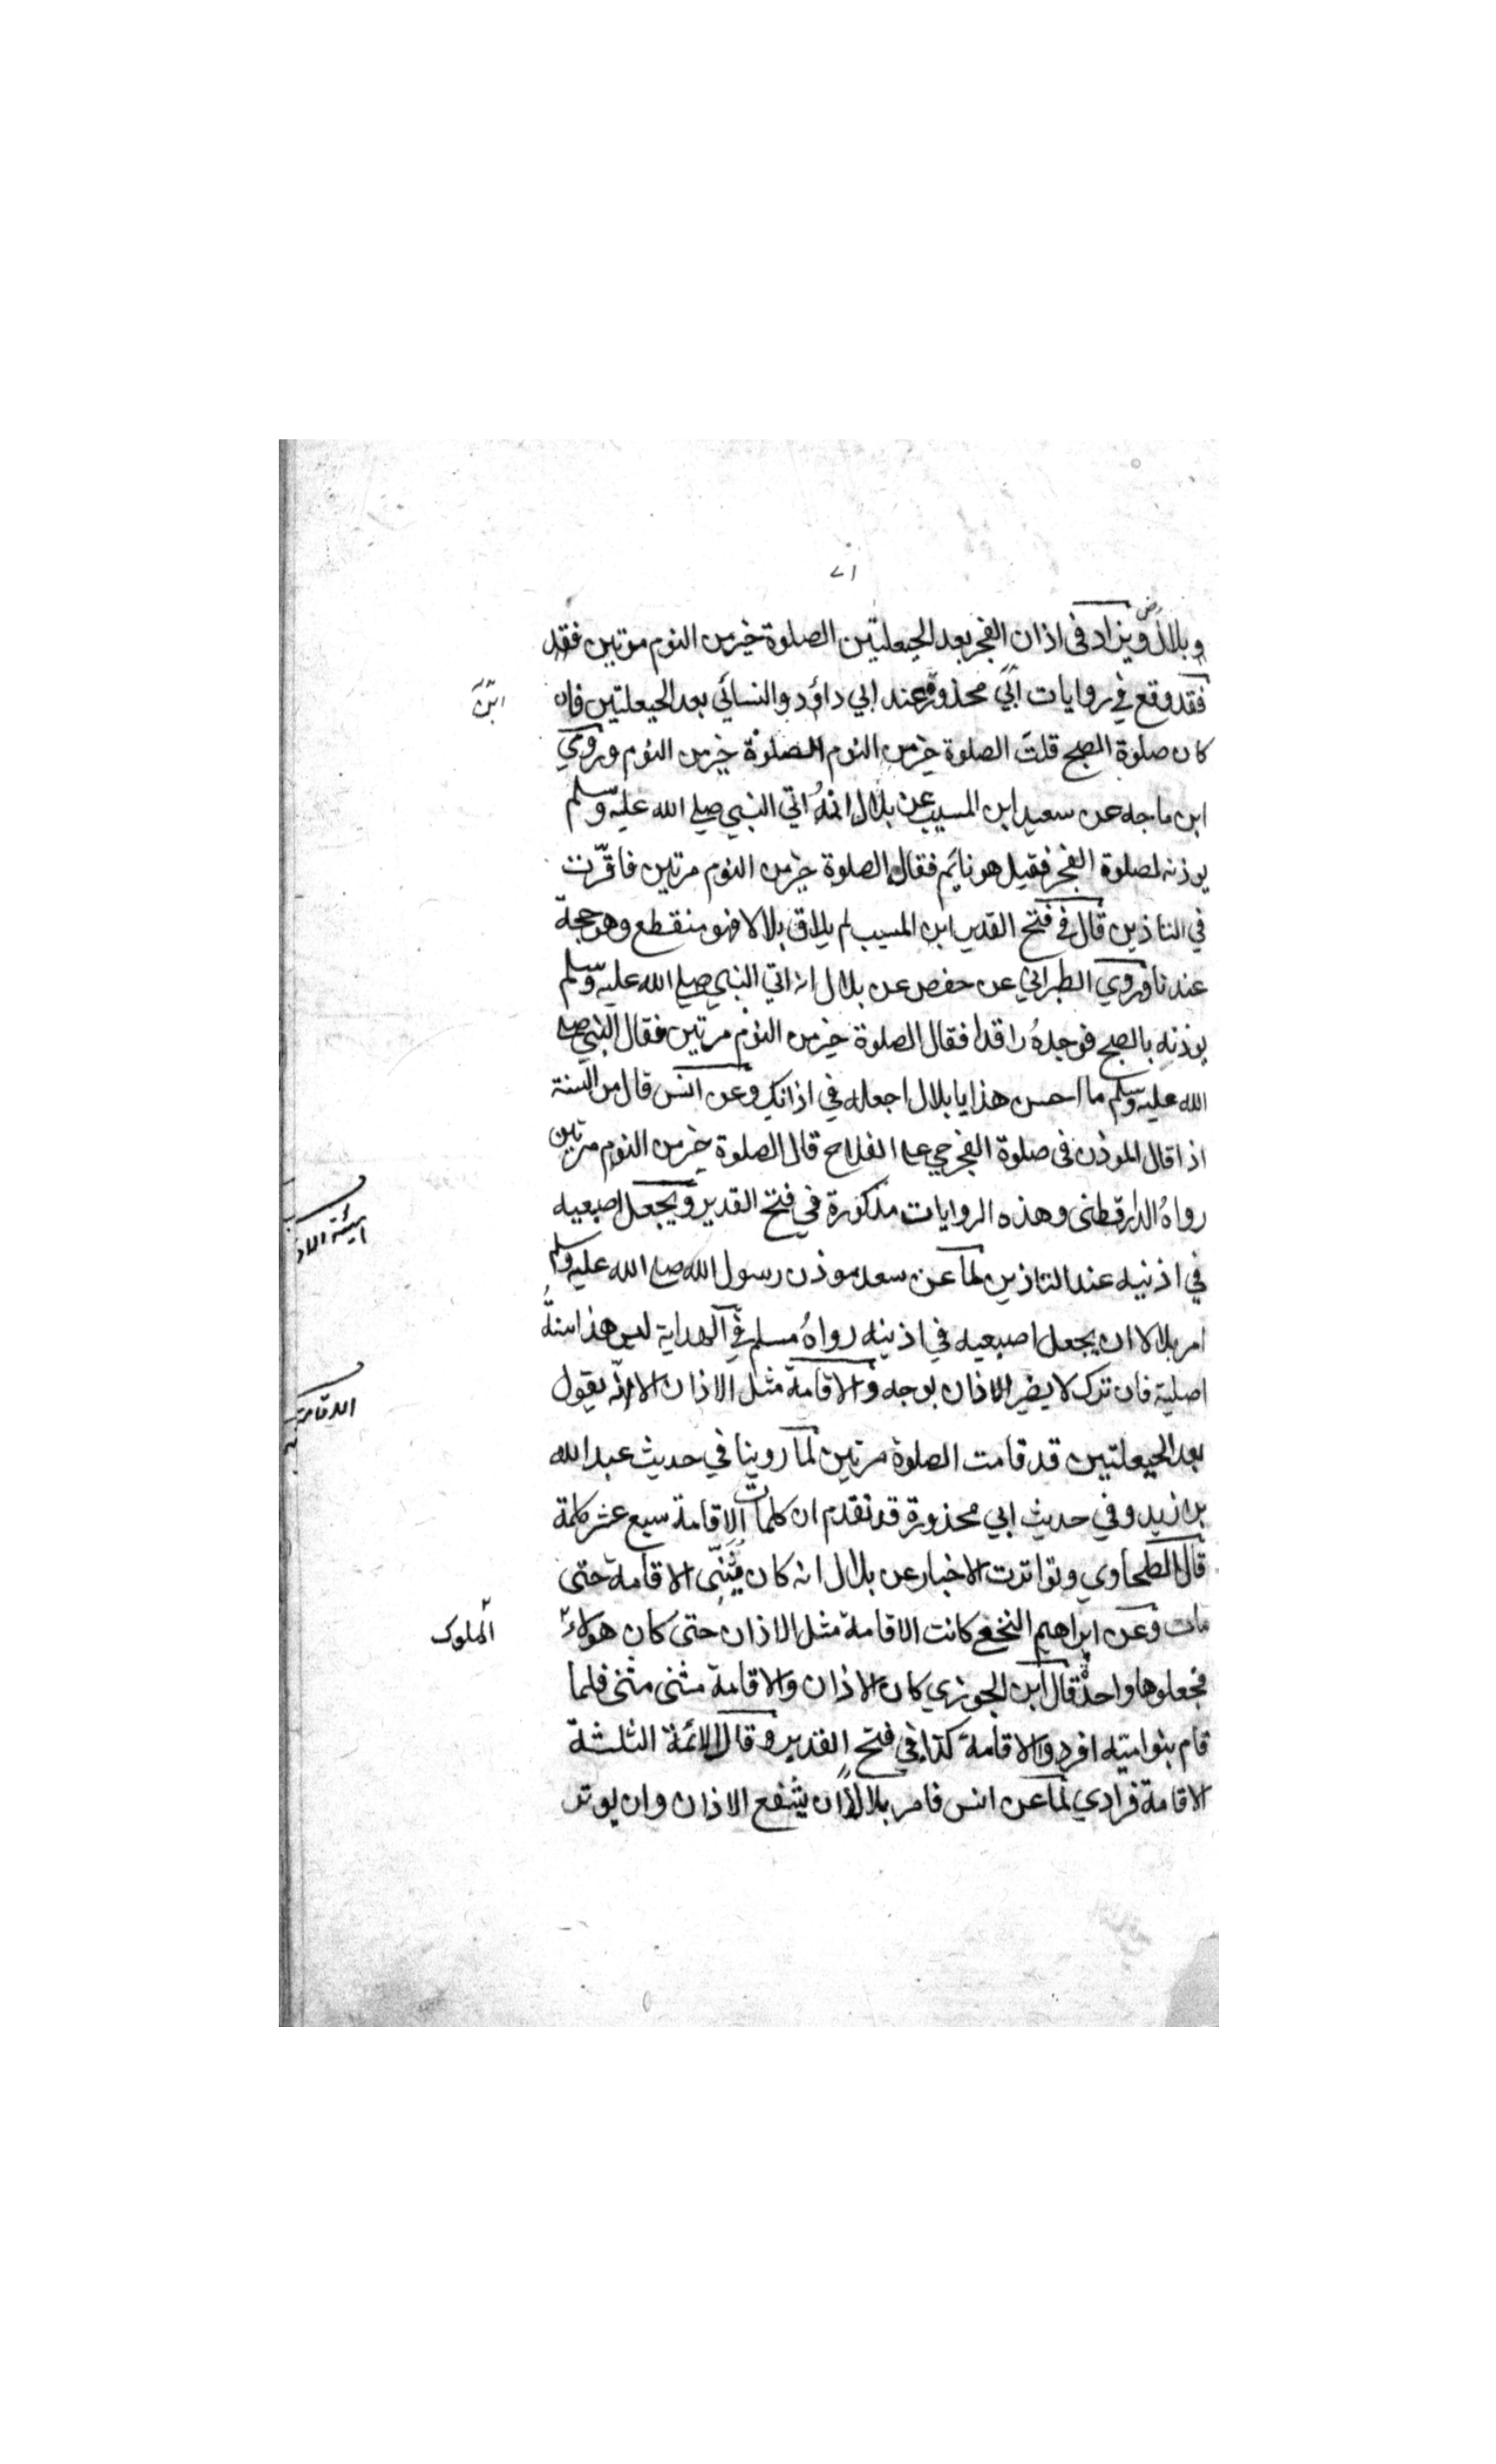 ٧١
وبلال رض ويزاد في اذان الفجر بعد الحيعلتين الصلوة خير من النوم مرتين فقد
فقد وقع في روايات ابي محذورة عند ابي داؤد والنسائي بعد الحيعلتين فان
كان صلوة الصبح قلت الصلوة خير من النوم الصلوة خير من النوم وروي
ابن ماجه عن سعيد ابن المسيب عن بلال انهُ اتي النبي صلے الله عليه وسلم
يوذنه لصلوة الفجر فقيل هو نايم فقال الصلوة خير من النوم مرتين فاقرّت
في التاذين قال في فتح القدير ابن المسيب لم يلاق بلالا فهو منقطع وهو حجة
عندنا وروي الطبراني عن حفص عن بلال انه اتي النبي صلے الله عليه وسلم
يوذنه بالصبح فوجدهُ راقدا فقال الصلوة خير من النوم مرتين فقال النبي صلے
الله عليه وسلم ما احسن هذا يا بلال اجعله في اذانك وعن انس قال من السنة
اذا قال الموذن في صلوة الفجر حي علے الفلاح قال الصلوة خير من النوم مرتين
رواهُ الدارقطني وهذه الروايات مذكورة في فتح القدير ويجعل اصبعيه
في اذنيه عند التاذين لما عن سعد موذن رسول الله صلے الله عليه وسلم
امر بلالا ان يجعل اصبعيه في اذنيه رواهُ مسلم في الهداية ليس هذا سنةً
اصلية فان ترك لا يضر الاذان بوجه والاقامة مثل الاذان الا انّه يقول
بعد الحيعلتين قد قامت الصلوة مرتين لما روينا في حديث عبد الله
بن زيد وفي حديث ابي محذورة قد تقدم ان كلمات الاقامة سبع عشر كلمة
قال الطحاوي وتواترت الاخبار عن بلال انه كان يُثَنّى الاقامة حتى
مات وعن ابراهيم النخعي كانت الاقامة مثل الاذان حتى كان هولاء
الملوك
فجعلوها واحدة قال ابن الجوزي كان الاذان والاقامة مثنى مثنى فلما
قام بنو اميته افردوا الاقامة كذا في فتح القدير وقال الائمة الثلثة
الاقامة فرادي لما عن انس فامر بلال ان يشفع الاذان وان يوتر